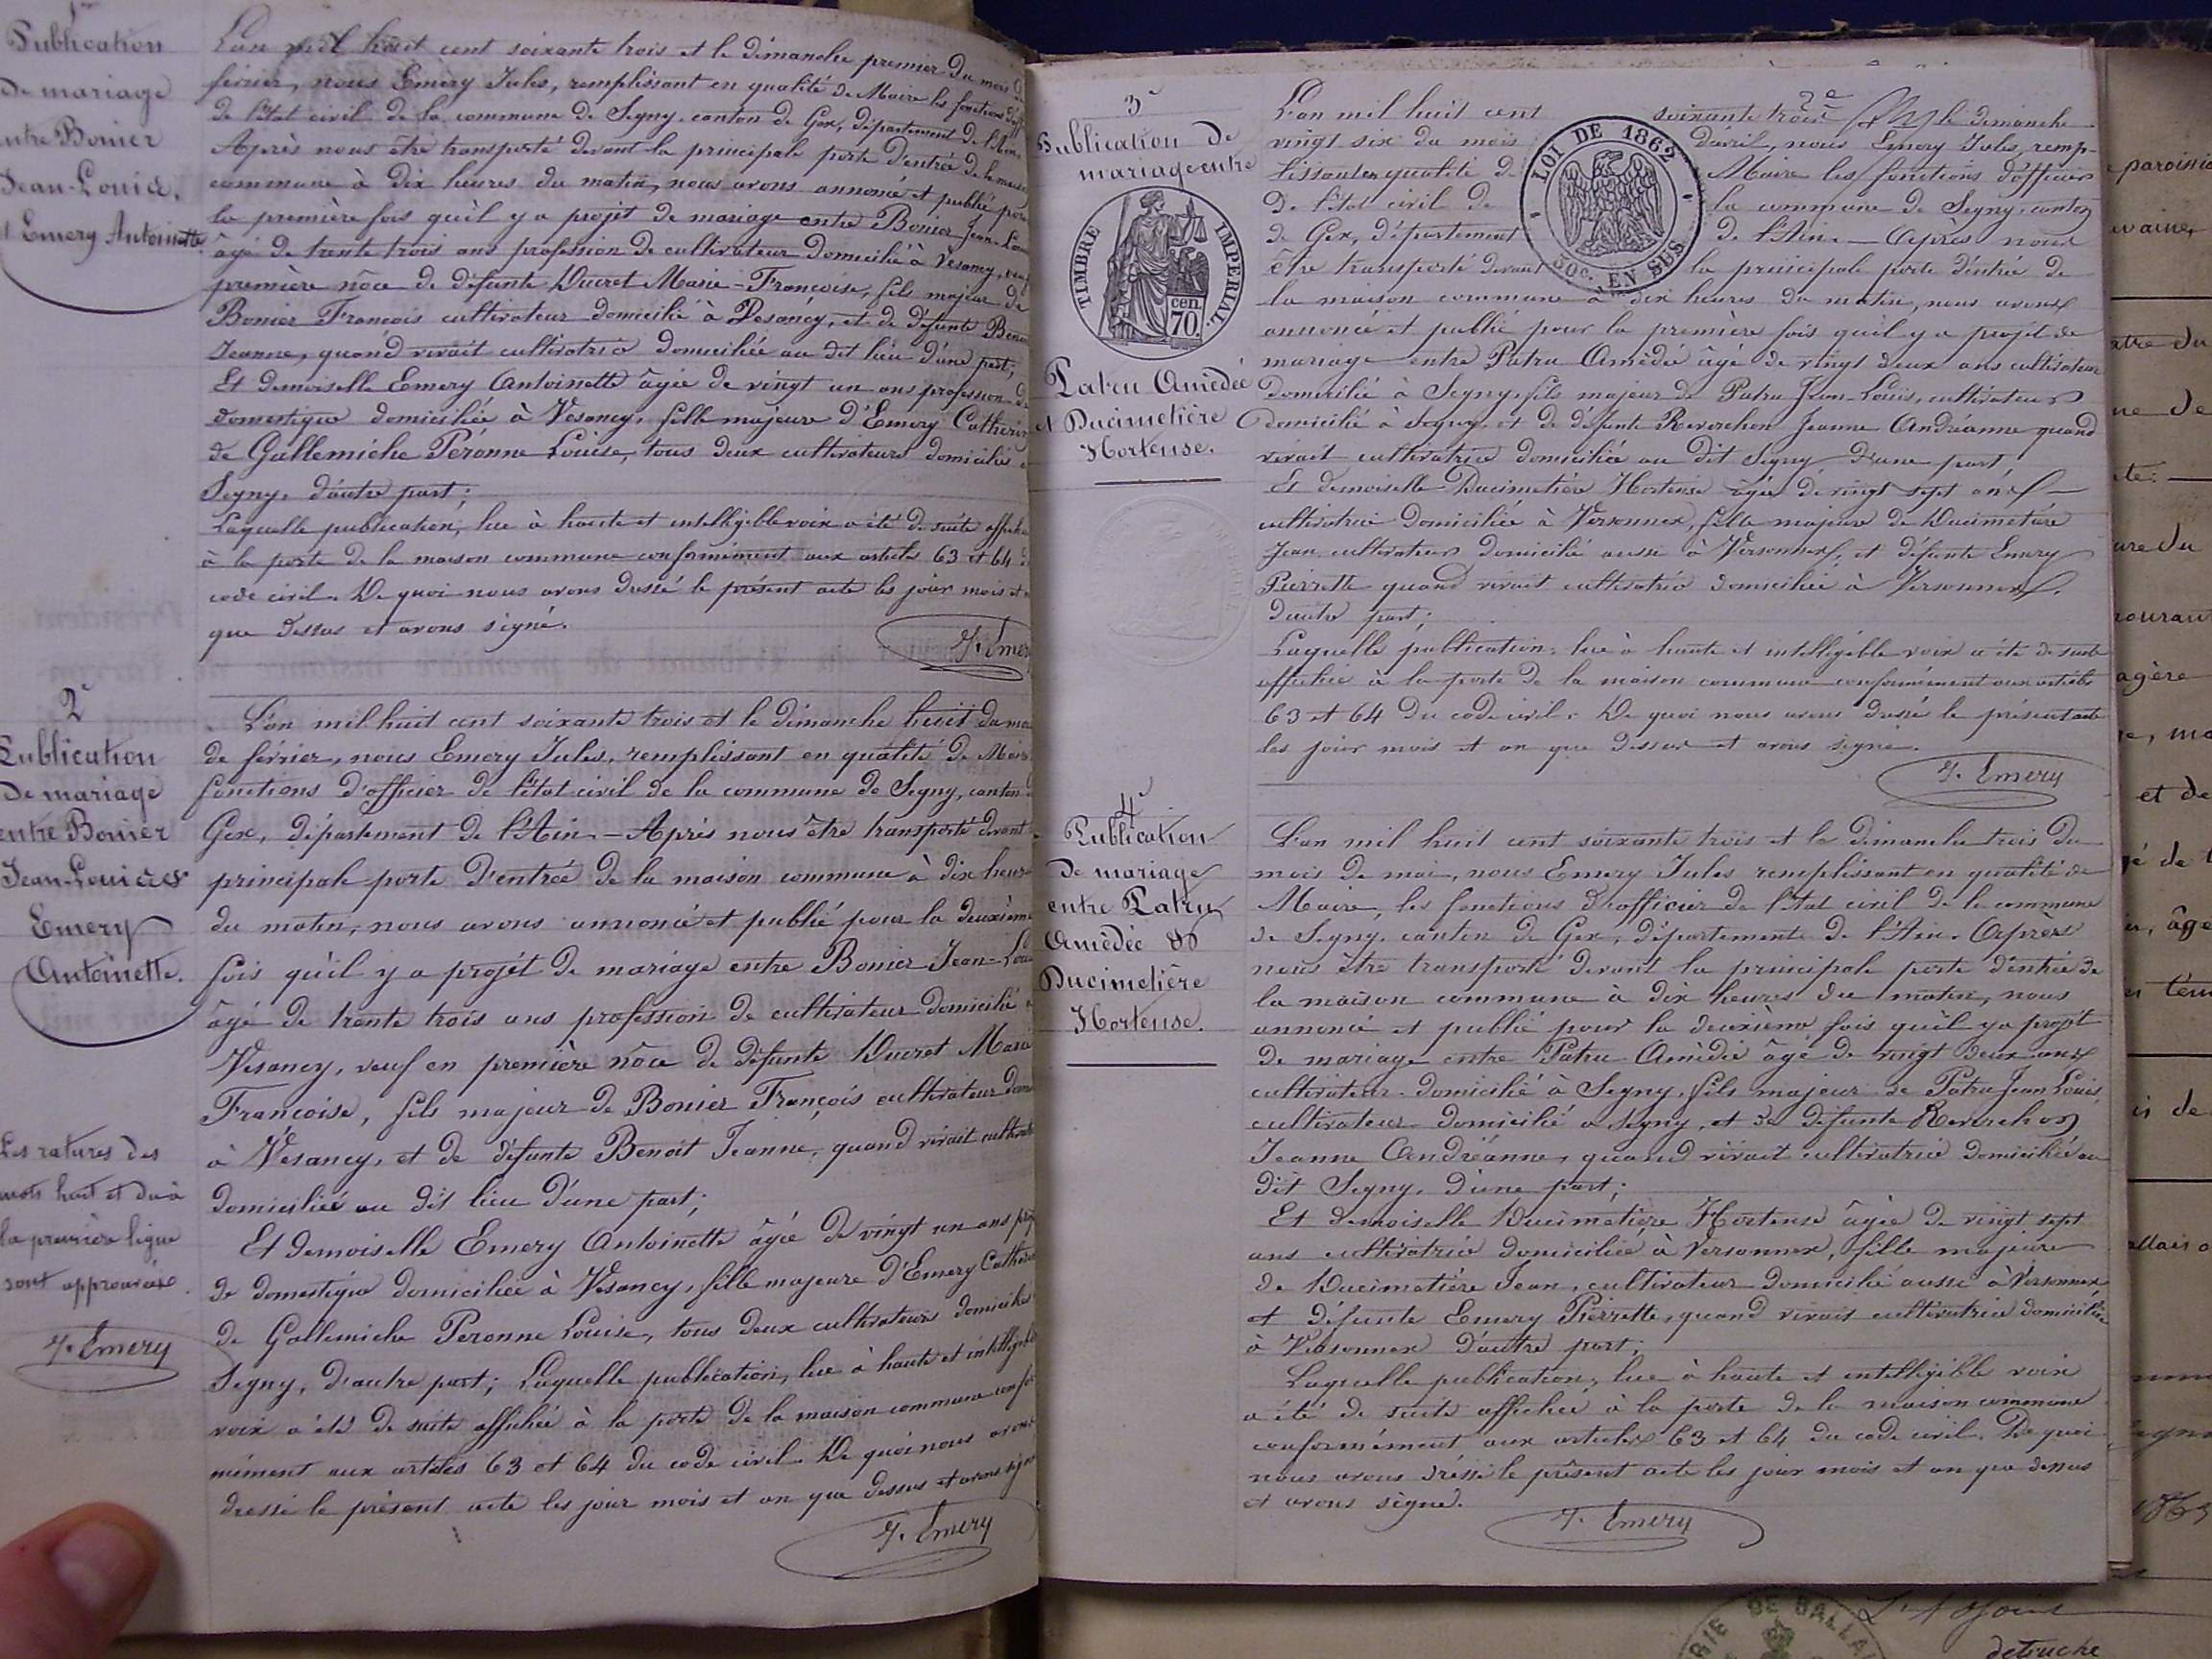 1re
Publication
de mariage
entre Bonier
Jean-Louis,
et Emery Antoinette
L'an mil huit cent soixante trois et le dimanche premier du mois de
février, nous Emery Jules, remplissant en qualité de Maire les fonctions d'off
de l'état civil de la commune de Segny, canton de Gex, département de l'Ain.
Après nous être transporté devant la principale porte d'entrée de la maison
commune à dix heures du matin, nous avons annoncé et publié pour
la première fois qu'il y a projet de mariage entre Bonier Jean-Lou
âgé de trente trois ans profession de cultivateur domicilié à Vesancy, veuf
première nôce de défunte Ducret Marie-Françoise, fils majeur de
Bonier François cultivateur domicilié à Vesancy, et de défunte Benoit
Jeanne, quand vivait cultivatrice domiciliée au dit lieu d'une part;
Et demoiselle Emery Antoinette âgée de vingt un ans profession de
domestique domiciliée à Vesancy, fille majeure d'Emery Catherin
de Gallemiche Péronne Louise, tous deux cultivateurs domiciliés à
Segny, d'autre part;
Laquelle publication, lue à haute et intelligible voix a été de suite affichée
à la porte de la maison commune conformément aux articles 63 et 64 du
code civil. De quoi nous avons dressé le présent acte les jour mois et an
que dessus et avons signé.
J. Emery
2e
Publication
de mariage
entre Bonier
Jean-Louis et
Emery
Antoinette.
L'an mil huit cent soixante trois et le dimanche huit du mois
de février, nous Emery Jules, remplissant en qualité de Maire
fonctions d'officier de l'état civil de la commune de Segny, canton de
Gex, département de l'Ain. - Après nous être transporté devant
principale porte d'entrée de la maison commune à dix heures
du matin, nous avons annoncé et publié pour la deuxième
fois qu'il y a projet de mariage entre Bonier Jean-Louis
âgé de trente trois ans profession de cultivateur domicilié à
Vesancy, veuf en première nôce de défunte Ducret Marie
Françoise, fils majeur de Bonier François cultivateur dom
à Vésancy, et de défunte Benoit Jeanne, quand vivait cultivatrice
domiciliée au dit lieu d'une part;
Et demoiselle Emery Antoinette âgée de vingt un ans prof
de domestique domiciliée à Vesancy, fille majeure d'Emery Catherin
de Gallemiche Peronne Louise, tous deux cultivateurs domiciliés
Segny, d'autre part; Laquelle publication, lue à haute et intelligible
voix a été de suite affichée à la porte de la maison commune confor
mément aux articles 63 et 64 du code civil. De quoi nous avons
dressé le présent acte les jour mois et an que dessus et avons signé
J. Emery
Les ratures des
mots huit et du à
la première ligne
sont approuvées.
J. Emery
3e
Publication de
mariage entre
TIMBRE IMPERIAL.
70 cen
Patru Amédée
et Ducimetière
Hortense.
LOI DE 1862
50c. EN SUS
L'an mil huit cent soixante trois et le dimanche
vingt six du mois d'avril, nous Emery Jules, remp-
lissant en qualité de Maire les fonctions d'officier
de l'état civil de la commune de Segny, canton
de Gex, département de l'Ain. — Après nous
être transporté devant la principale porte d'entrée de
la maison commune à dix heures du matin, nous avons
annoncé et publié pour la première fois qu'il y a projet de
mariage entre Patru Amédé âgé de vingt deux ans cultivateur
domicilié à Segny, fils majeur de Patru Jean-Louis, cultivateur
domicilié à Segny, et de défunte Reverchon Jeanne Andréanne quand
vivait cultivatrice domiciliée au dit Segny d'une part;
Et demoiselle Ducimetière Hortense âgée de vingt sept ans
cultivatrice domiciliée à Versonnex, fille majeure de Ducimetière
Jean cultivateur domicilié aussi à Versonnex, et défunte Emery
Pierrette quand vivait cultivatrice domiciliée à Versonnex.
d'autre part;
Laquelle publication, lue à haute et intelligible voix a été de suite
affichée à la porte de la maison commune conformément aux articles
63 et 64 du code civil. De quoi nous avons dressé le présent acte
les jour mois et an que dessus et avons signé.
J. Emery
4e
Publication
de mariage
entre Patru
Amédée et
Ducimetière
Hortense.
L'an mil huit cent soixante trois et le dimanche trois du
mois de mai, nous Emery Jules remplissant en qualité de
Maire, les fonctions d'officier de l'état civil de la commune
de Segny, canton de Gex, département de l'Ain. Après
nous être transporté devant la principale porte d'entrée de
la maison commune à dix heures du matin, nous
annoncé et publié pour la deuxième fois qu'il y a projet
de mariage entre Patru Amédé âgé de vingt deux ans
cultivateur domicilié à Segny, fils majeur de Patru Jean Louis,
cultivateur domicilié à Segny, et de défunte Reverchon
Jeanne Andréanne, quand vivait cultivatrice domiciliée au
dit Segny, d'une part;
Et demoiselle Ducimetière Hortense âgée de vingt sept
ans cultivatrice domiciliée à Versonnex, fille majeure
de Ducimetière Jean, cultivateur domicilié aussi à Versonnex
et défunte Emery Pierrette, quand vivait cultivatrice domiciliée
à Versonnex d'autre part;
Laquelle publication, lue à haute et intelligible voix
a été de suite affichée à la porte de la maison commune
conformément aux articles 63 et 64 du code civil. De quoi
nous avons dressé le présent acte les jour mois et an que dessus
et avons signé.
J. Emery